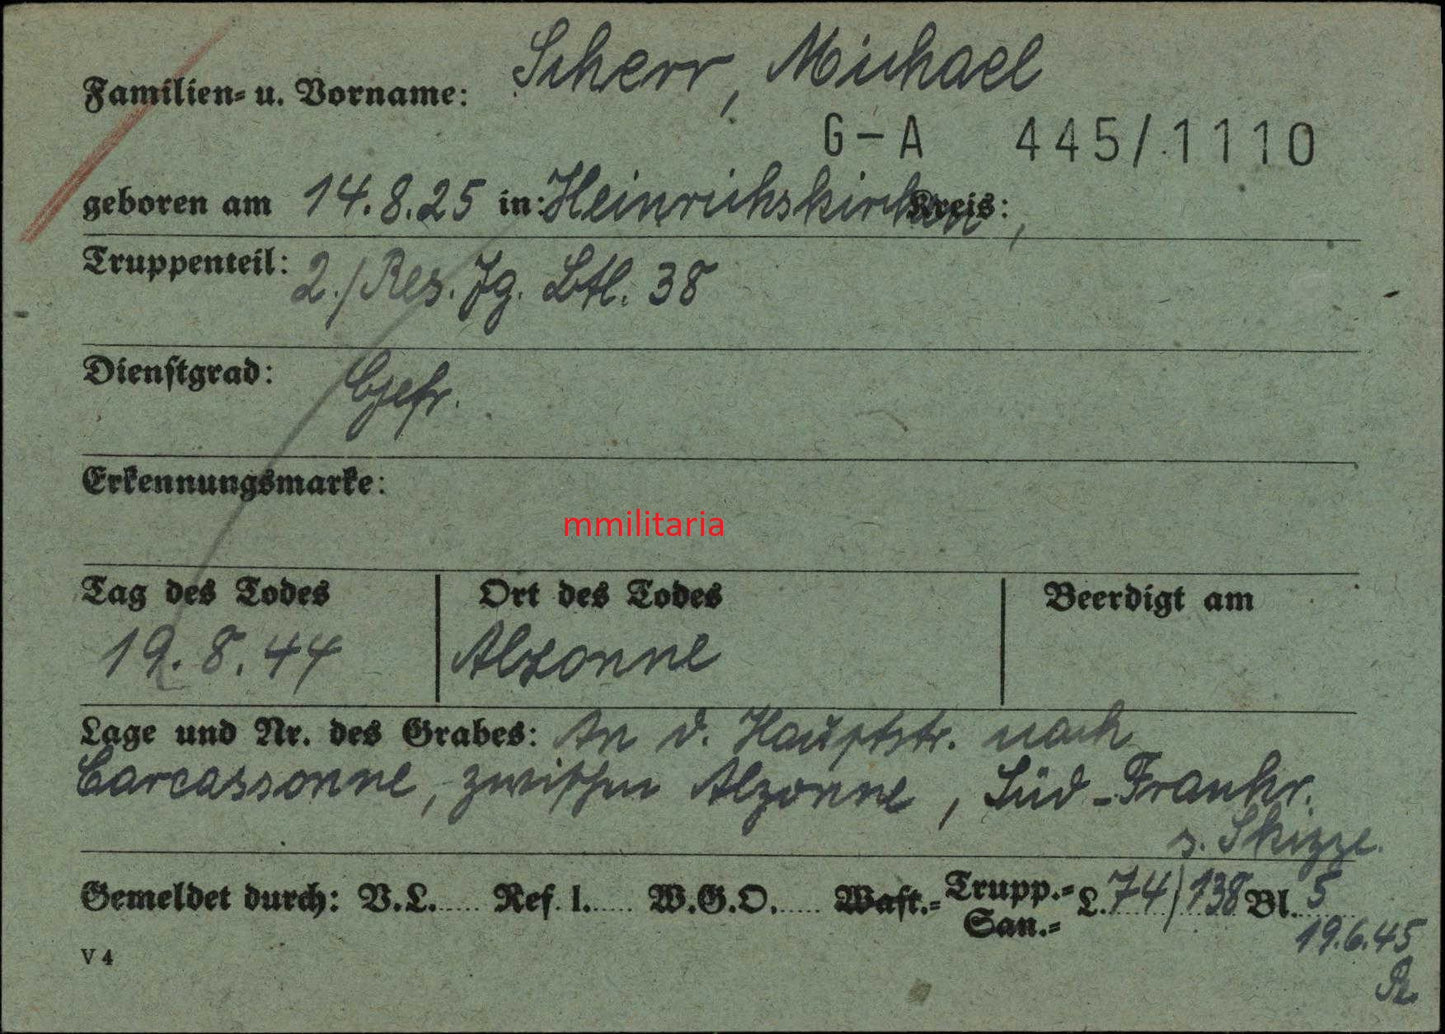 Familien- u. Vorname: Scherr, Michael
G-A 445/1110
geboren am 14.8.25 in: Heinrichskirchen, Kreis:
Truppenteil: 2./Res. Jg. Btl. 38
Dienstgrad: Gefr.
Erkennungsmarke:
mmilitaria
Tag des Todes Ort des Todes Beerdigt am
19.8.44 Alzonne
Lage und Nr. des Grabes: An d. Hauptstr. nach
Carcassonne, zwischen Alzonne, Süd-Frankr.
s. Skizze.
Gemeldet durch: V.L. Ref. I. W.G.O. Wast.- Trupp.- L. 74/138 Bl. 5
San.-
19.6.45
V 4